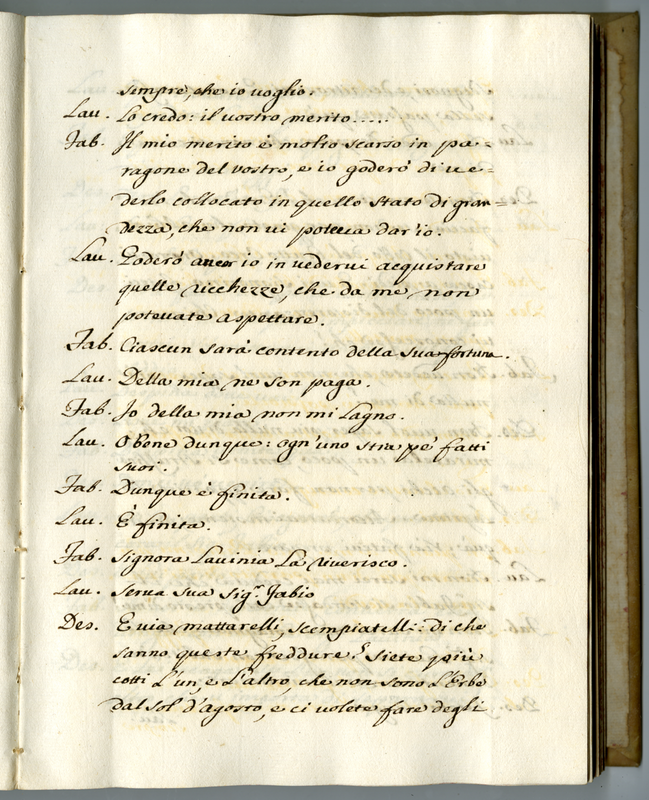 sempre, che io voglio.
Lau. Lo credo: il vostro merito.....
Fab. Il mio merito è molto scarso in pa=
ragone del vostro, e io goderò di ve=
derlo collocato in quello stato di gran=
dezza, che non vi poteva dar'io.
Lau. Goderò ancor io in vedervi acquistare
quelle ricchezze, che da me non
potevate aspettare.
Fab. Ciascun sarà contento della sua fortuna.
Lau. Della mia ne son paga.
Fab. Io della mia non mi lagno.
Lau. O bene dunque: ogn'uno stia pe' fatti
suoi.
Fab. Dunque è finita.
Lau. È finita.
Fab. Signora Lavinia La riverisco.
Lau. Serva sua Sig.r Fabio
Des. E via mattarelli, scempiatelli: di che
sanno queste freddure? Siete più
cotti L'un, e L'altro, che non sono L'Erbe
dal Sol d'agosto, e ci volete fare degli